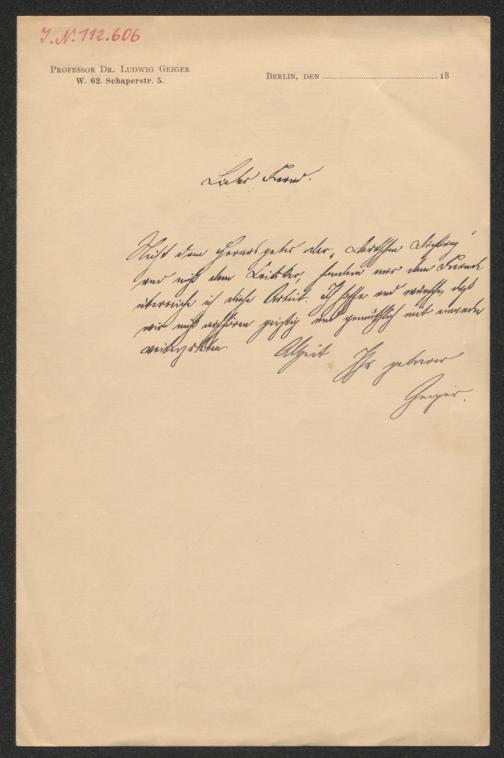 J.N. 112.606
PROFESSOR DR. LUDWIG GEIGER
W. 62. Schaperstr. 5.
BERLIN, DEN 18
Lieber Freund.
Nicht dem Herausgeber der „Deutschen Dichtung"
und nicht dem Kritiker, sondern nur dem Freunde
überreiche ich diese Arbeit. Ich hoffe und wünsche, daß
wir nicht aufhören geistig und gemüthlich mit einander
Allzeit Ihr getreuer
Geiger.